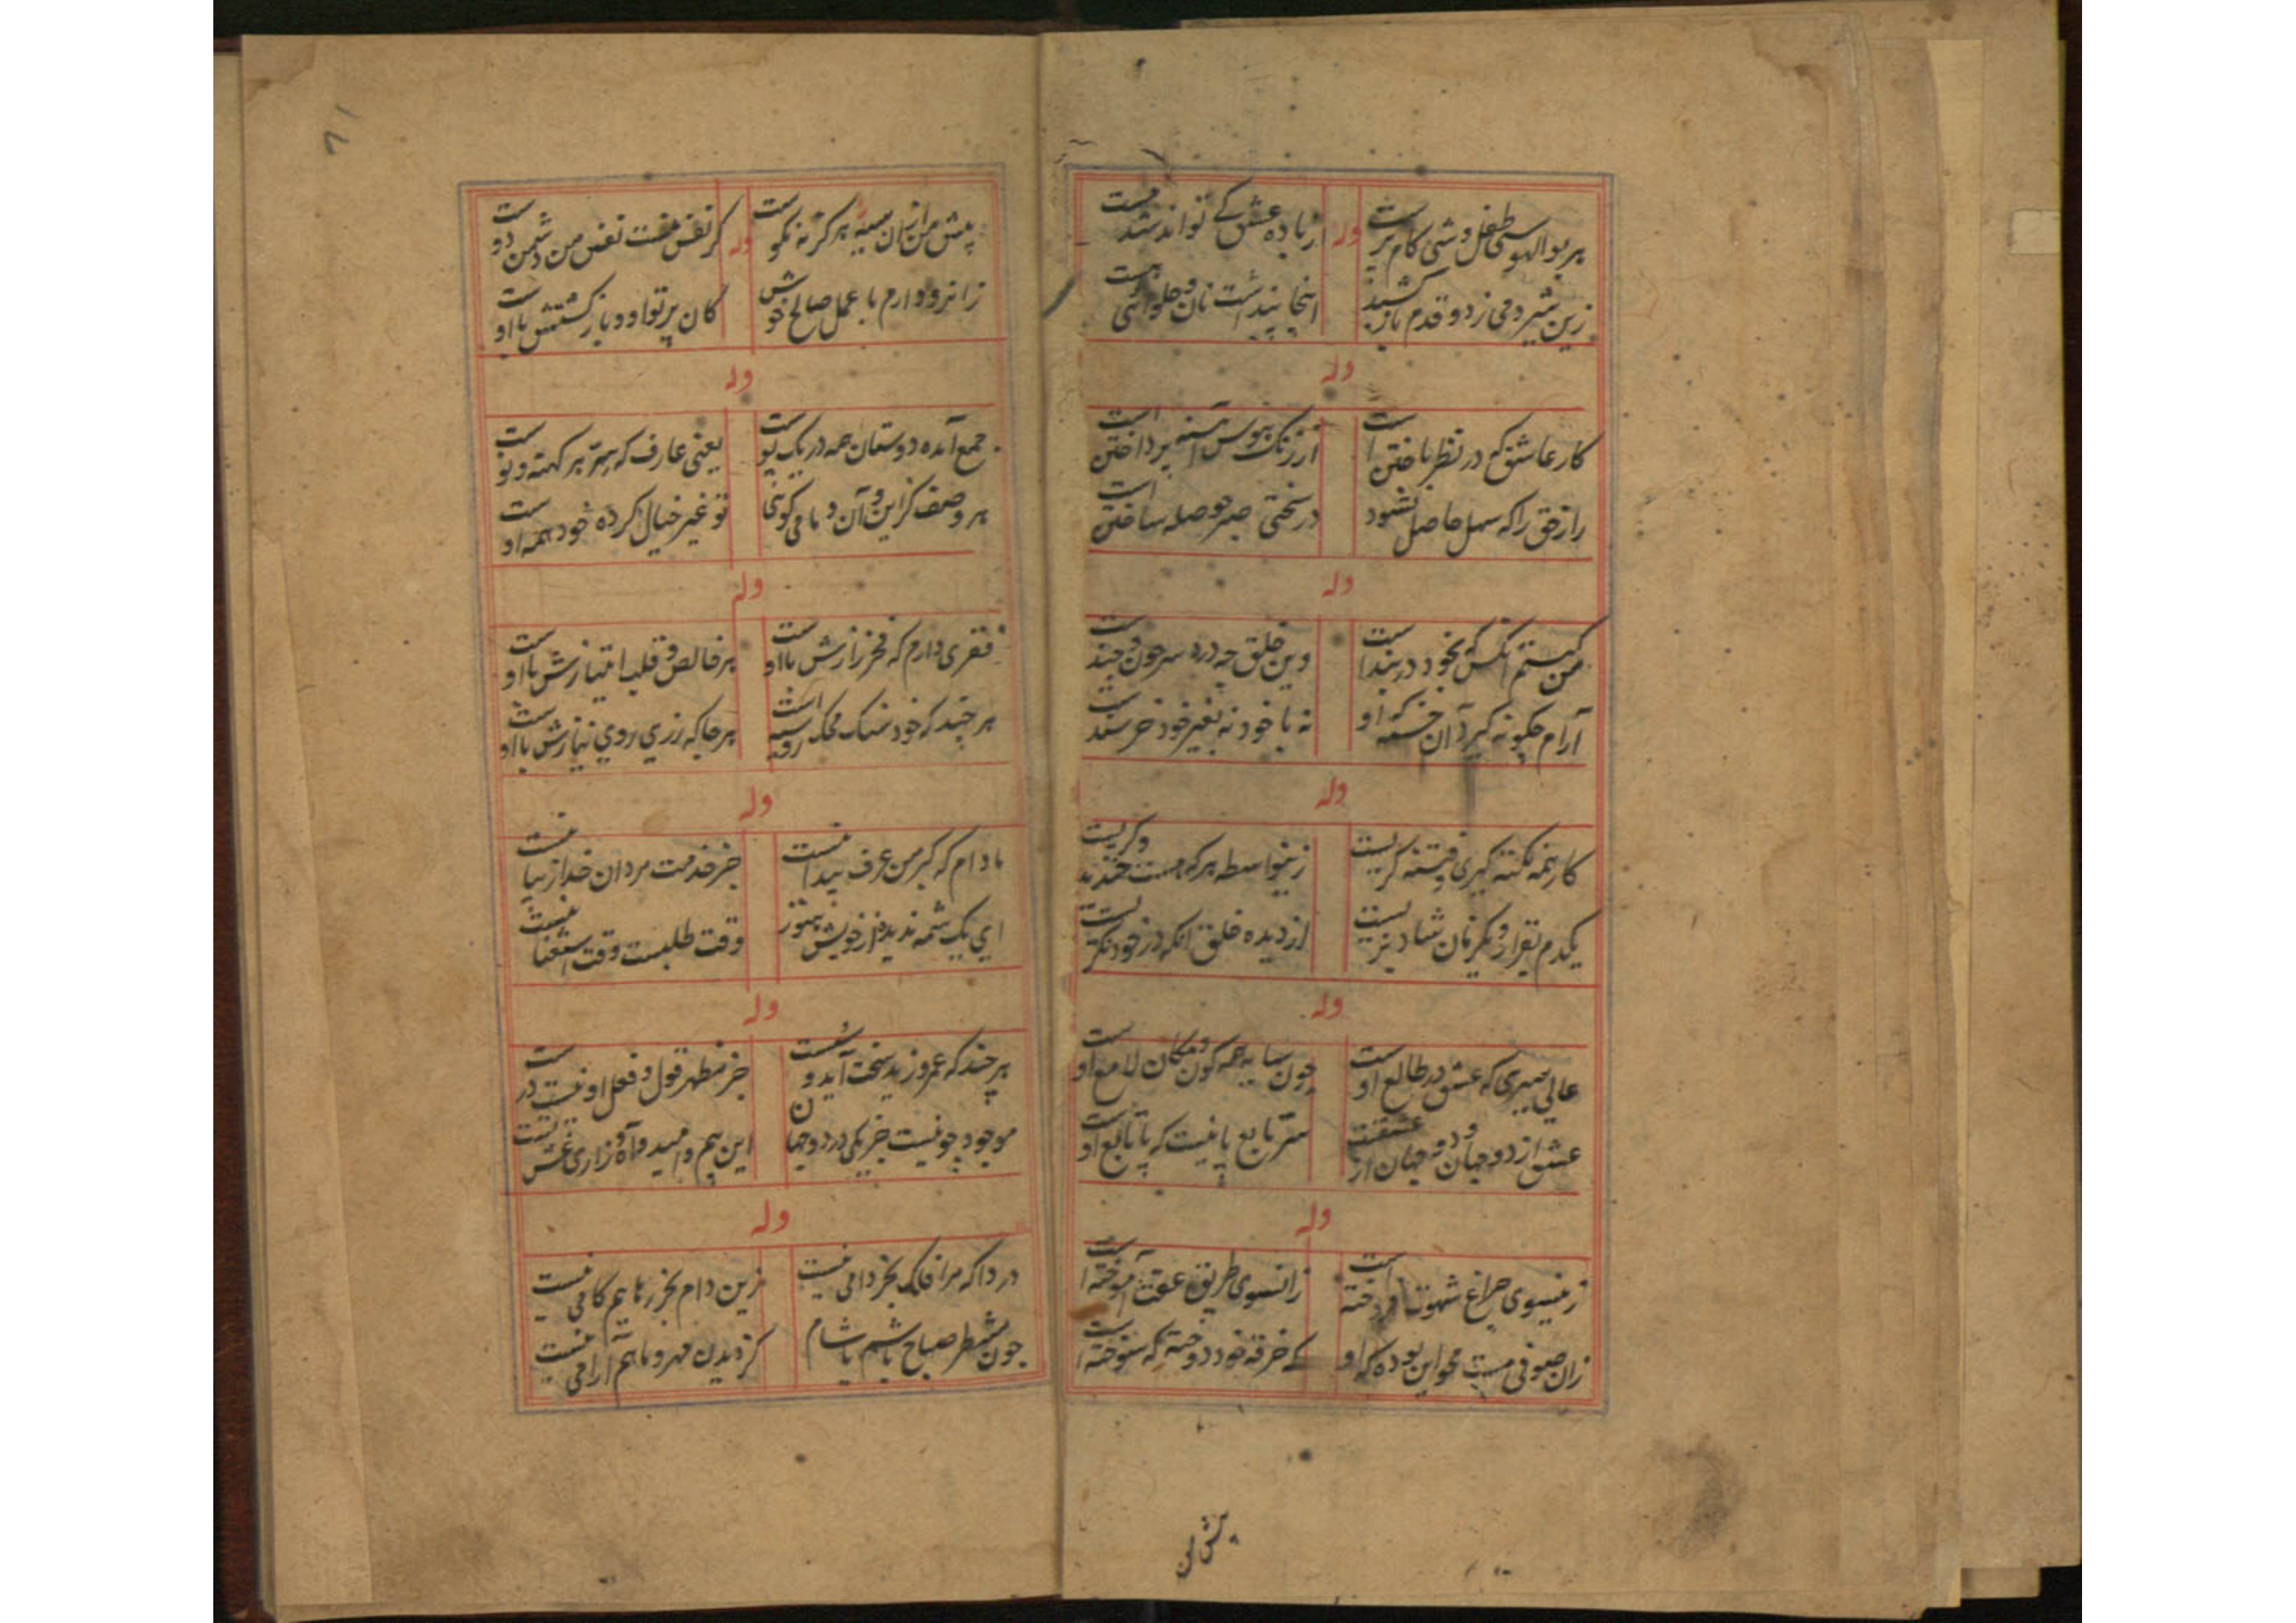 هر بوالهوسی طفل وشی کام پرست
از باده عشق کی تواند شد مست
وله
زین شیر دمی زد و قدم باز کشید
اینجا پنداشت نان و حلوائی هست
وله
کار عاشق که در نظر باختن است
از زنگ هوس آئینه پرداختن است
راز حق را که سهل حاصل نشود
در سختی صبر حوصله ساختن است
وله
من کیستم آنکس که بخود در بند است
وین خلق چه درد سر چون و چند است
آرام چگونه گیرد آن خسته که او
نه با خود نه بغیر خود خرسند است
وله
کار همه نکته گیری و فتنه گریست
زینواسطه هر که هست خندید و گریست
یکدم بقرار و یکزمان شاد نزیست
از دیده خلق آنکه در خود نگریست
وله
عالی سیری که عشق در طالع اوست
چون سایه همه کون و مکان لامع اوست
عشق از دو جهان و دو جهان از عشقست
سر تابع پا نیست که پا تابع اوست
وله
زینسوی چراغ شهوت افروخته است
زانسوی طریق عفت آموخته است
زان صوفی مست محو این بوده که او
که خرقه خود دوخته که سوخته است
پیش من
۶۱
پیش من از آن سیه هر گز نه نکوست
گر نفس منست نفس من دشمن دوست
وله
زانرو دارم با عمل صالح خوش
کان پرتو او و بازگشتش با اوست
وله
جمع آمده دوستان همه در یک پوست
یعنی عارف که سر هر کهنه و نوست
هر وصف کز این و آن و ما می گوئی
تو غیر خیال کرده خود همه اوست
وله
فقری دارم که فخر رازش با اوست
هر خالص و قلب امتیازش با اوست
هر چند که خود سنگ محک روسیه است
هر جا که زری روی نیازش با اوست
وله
مادام که کبر من عرف پیدا نیست
جز خدمت مردان خدا زیبا نیست
ای یک شمه ندیده از خویش هنوز
وقت طلبست وقت استغنا نیست
وله
هر چند که عمرو زید سخت آید و سست
جز مظهر قول و فعل او نیست درست
موجود چو نیست جز یکی در دو جهان
این بیم و امید و آه و زاری
وله
دردا که مرا فلک بجز دامی نیست
زین دام بجز رهاییم کامی نیست
چون منتظر صباح باشم یا شام
کز دیدن مهر و ماهم آرامی نیست